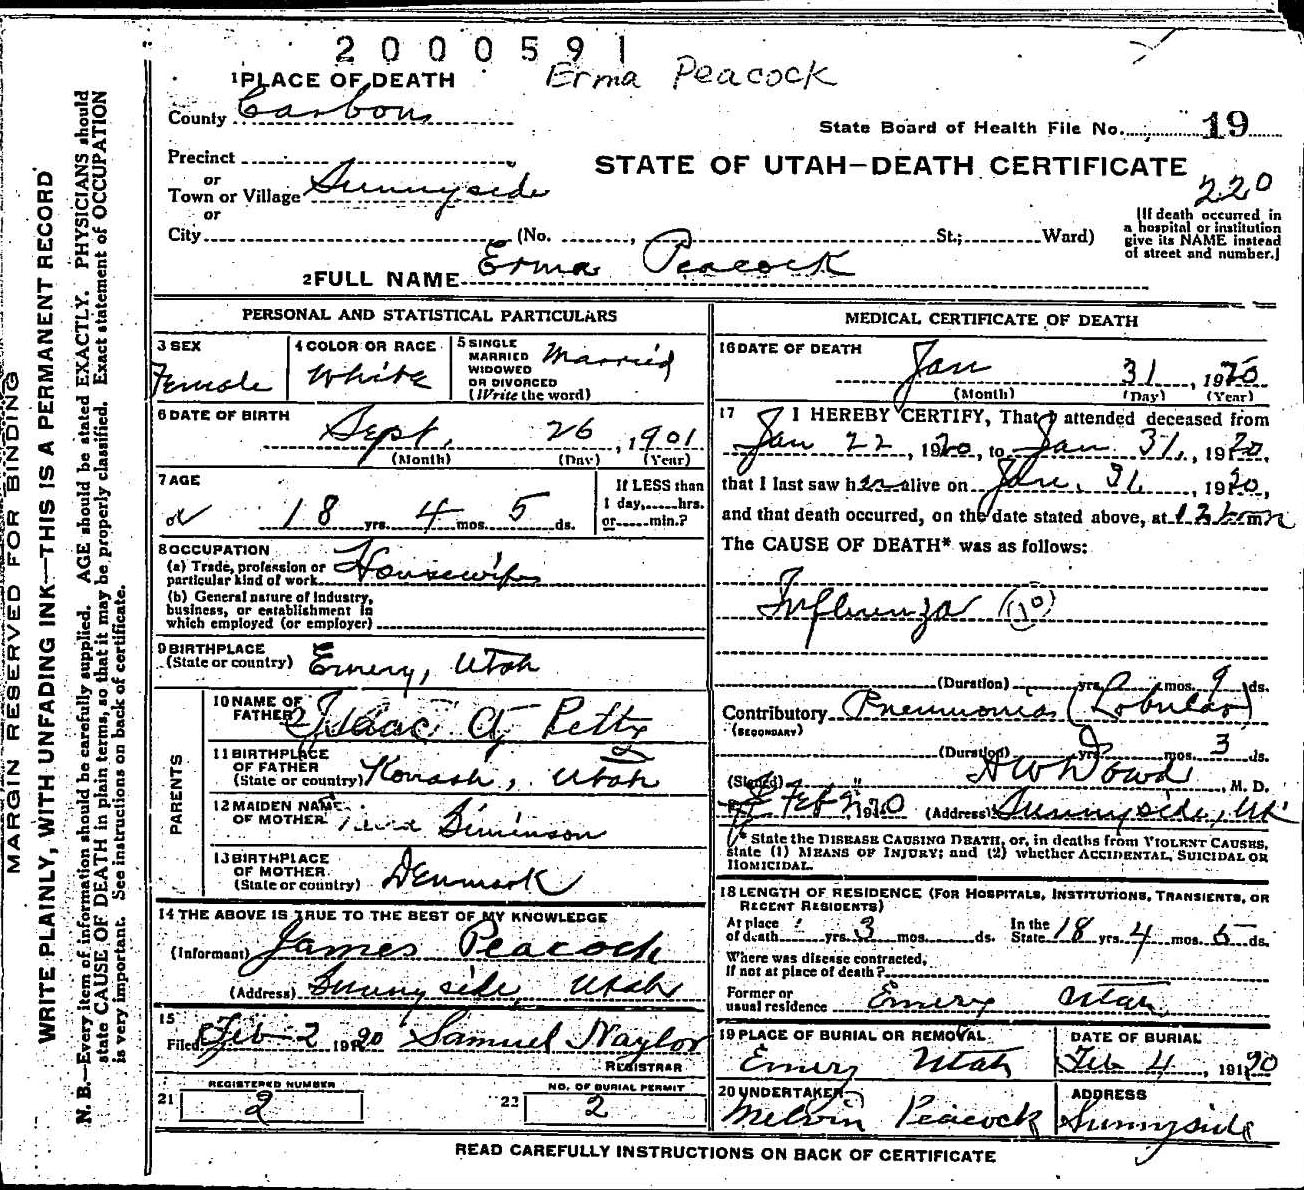 2000591
Erma Peacock
1 PLACE OF DEATH
County Carbon
State Board of Health File No. 19
Precinct
or
Town or Village Sunnyside
or
City (No. , St.; Ward)
STATE OF UTAH—DEATH CERTIFICATE
220
(If death occurred in
a hospital or institution
give its NAME instead
of street and number.)
2 FULL NAME Erma Peacock
PERSONAL AND STATISTICAL PARTICULARS
3 SEX
Female
4 COLOR OR RACE
White
5 SINGLE
MARRIED
WIDOWED
OR DIVORCED
(Write the word)
Married
6 DATE OF BIRTH
Sept. 26, 1901
(Month) (Day) (Year)
7 AGE
18 yrs. 4 mos. 5 ds.
If LESS than
1 day, hrs.
or min.?
8 OCCUPATION
(a) Trade, profession or
particular kind of work Housewife
(b) General nature of industry,
business, or establishment in
which employed (or employer)
9 BIRTHPLACE
(State or country) Emery, Utah
PARENTS
10 NAME OF
FATHER Isaac
11 BIRTHPLACE
OF FATHER
(State or country) Utah
12 MAIDEN NAME
OF MOTHER Siminson
13 BIRTHPLACE
OF MOTHER
(State or country) Denmark
14 THE ABOVE IS TRUE TO THE BEST OF MY KNOWLEDGE
(Informant) James Peacock
(Address) Sunnyside, Utah
15
Filed Feb 2 1920 Samuel Naylor
REGISTRAR
21 REGISTERED NUMBER
2
22 NO. OF BURIAL PERMIT
2
MEDICAL CERTIFICATE OF DEATH
16 DATE OF DEATH
Jan 31, 1920
(Month) (Day) (Year)
17 I HEREBY CERTIFY, That I attended deceased from
Jan 22, 1920, to Jan 31, 1920,
that I last saw her alive on Jan. 31, 1920,
and that death occurred, on the date stated above, at 12 m
The CAUSE OF DEATH* was as follows:
Influenza (10)
(Duration) yrs. mos. 9 ds.
Contributory Pneumonia (Lobular)
(SECONDARY)
(Duration) yrs. mos. 3 ds.
(Signed) Dowd, M. D.
Feb 2, 1920 (Address) Sunnyside, Ut
* State the DISEASE CAUSING DEATH, or, in deaths from VIOLENT CAUSES,
state (1) MEANS OF INJURY; and (2) whether ACCIDENTAL, SUICIDAL OR
HOMICIDAL.
18 LENGTH OF RESIDENCE (FOR HOSPITALS, INSTITUTIONS, TRANSIENTS, OR
RECENT RESIDENTS)
At place
of death yrs. 3 mos. ds. In the
State 18 yrs. 4 mos. 5 ds.
Where was disease contracted,
If not at place of death?
Former or
usual residence Emery Utah
19 PLACE OF BURIAL OR REMOVAL
Emery Utah
DATE OF BURIAL
Feb 4, 1920
20 UNDERTAKER
Melvin Peacock
ADDRESS
Sunnyside
READ CAREFULLY INSTRUCTIONS ON BACK OF CERTIFICATE
MARGIN RESERVED FOR BINDING
WRITE PLAINLY, WITH UNFADING INK—THIS IS A PERMANENT RECORD
N. B.—Every item of information should be carefully supplied. AGE should be stated EXACTLY. PHYSICIANS should
state CAUSE OF DEATH in plain terms, so that it may be properly classified. Exact statement of OCCUPATION
is very important. See instructions on back of certificate.